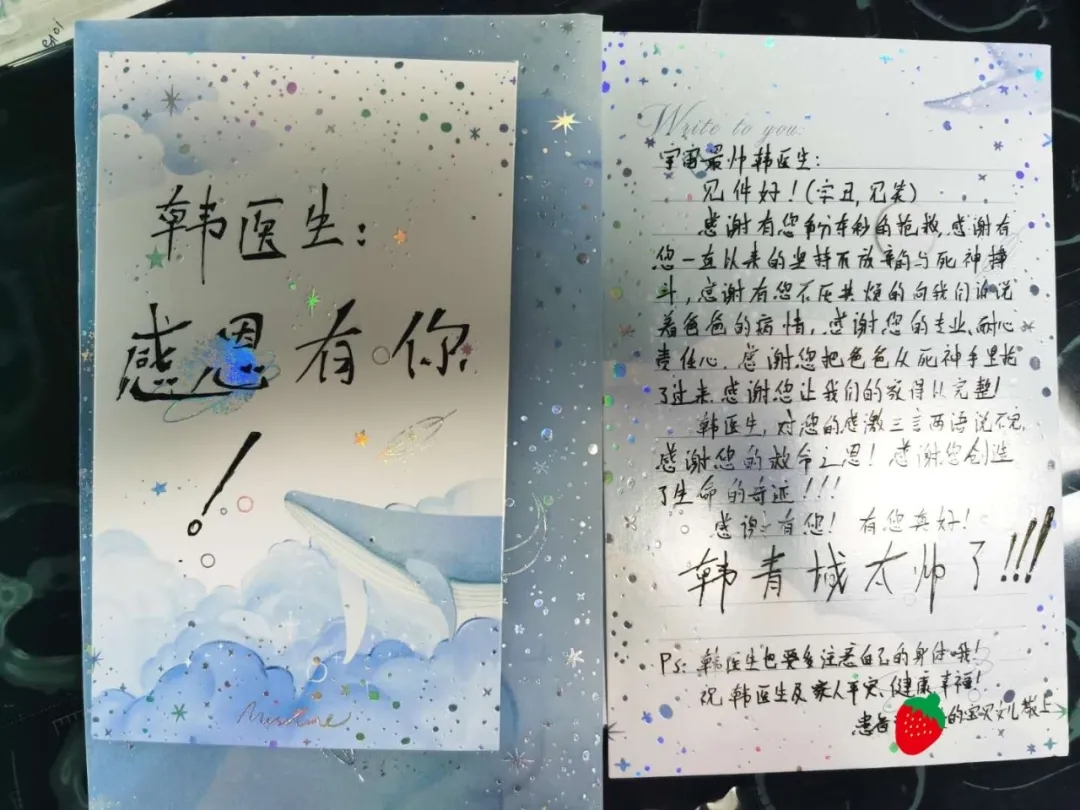 韩医生:
感恩有你
!
Write to you:
宇宙最帅韩医生:
见件好!(字丑,见笑)
感谢有您争分夺秒的抢救,感谢有
您一直以来的坚持不放弃的与死神搏
斗,感谢有您不厌其烦的向我们诉说
着爸爸的病情.感谢您的专业、耐心
责任心.感谢您把爸爸从死神手里抢
了过来.感谢您让我们的家得以完整!
韩医生,对您的感激三言两语说不完,
感谢您的救命之恩!感谢您创造
了生命的奇迹!!!
感谢有您!有您真好!
韩青域太帅了!!!
Ps:韩医生也要多注意自己的身体哦!
祝韩医生及家人平安、健康幸福!
患者 的宝贝女儿敬上